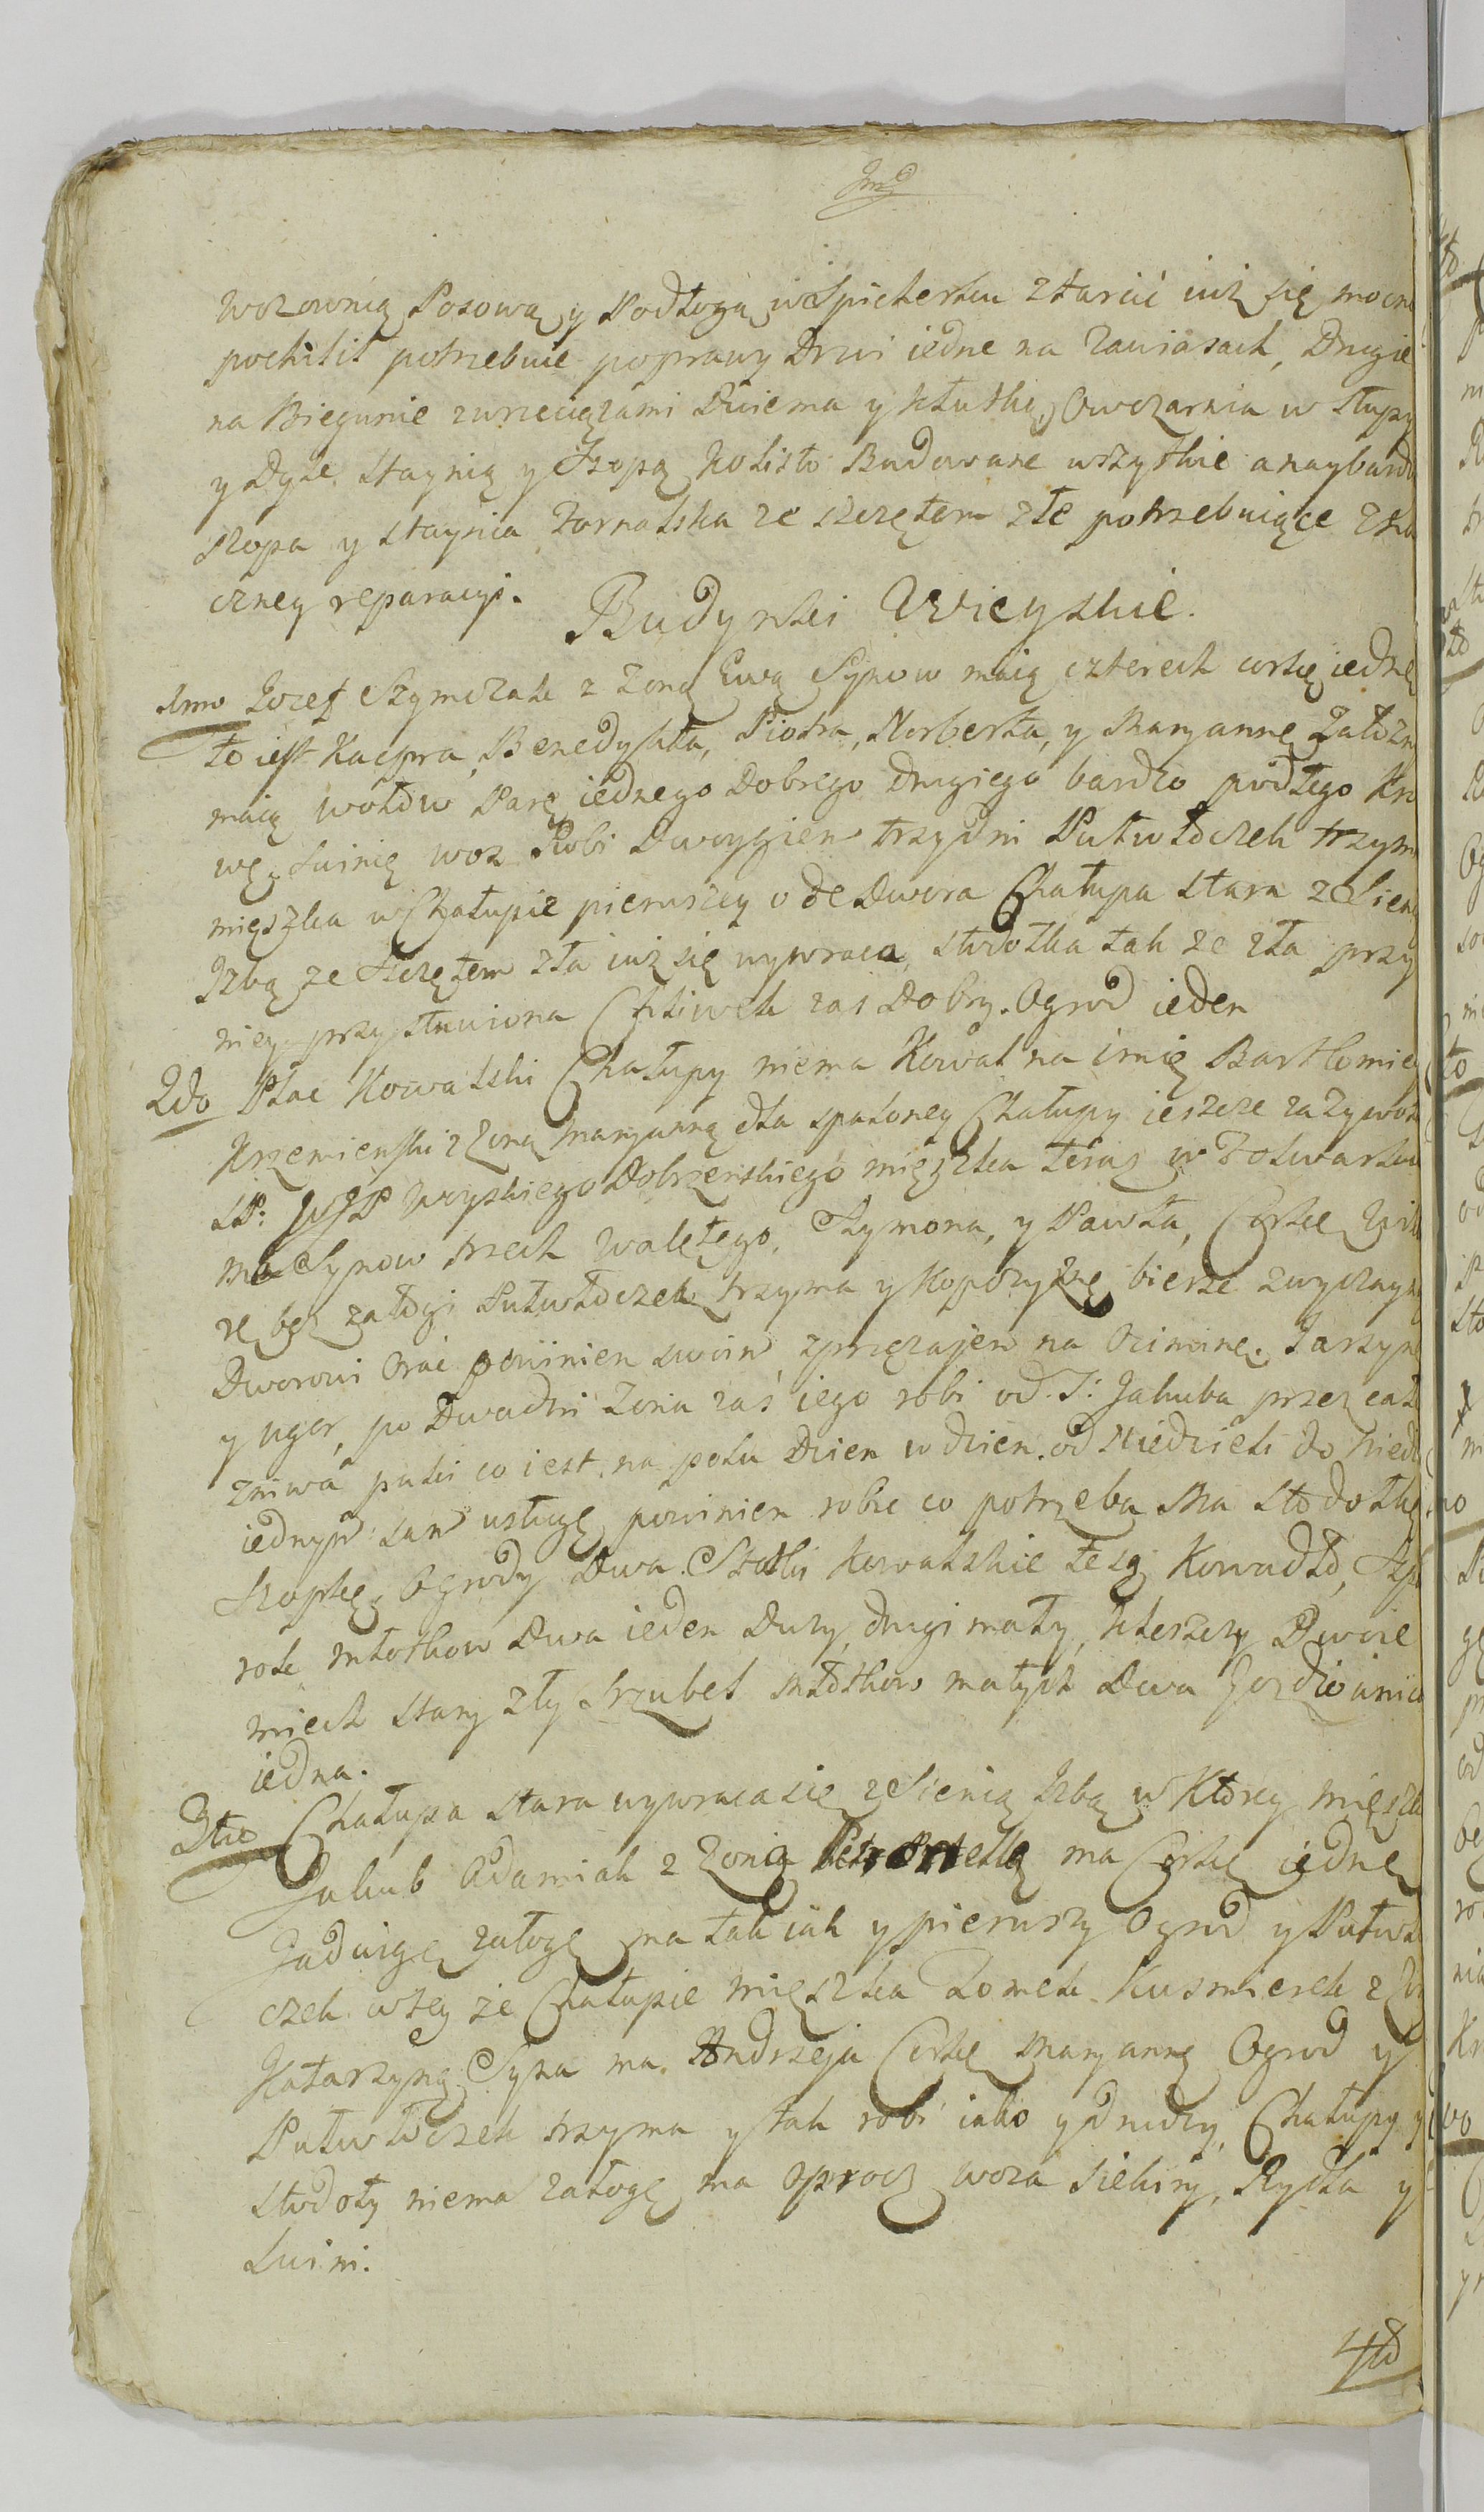 wozownią Posową y Podłogą w Spicherku zkarcić iuż się mocno
pochilił potrzebuie poprawy Drzwi iedne na Zawiasach, Drugie
na Biegunie z wrzeciązami Dwiema y kłutką, Owczarnia w słupy
y Dyle, Staynią y Szopą kolisto Budowane wszystkie a naybard
szopa y staynia Fornalska ze szczętem złe potrzebuiące zna
czney reparacyi.
Budynki Wieyskie.
Imo Jozef Szymczak z Zoną Ewą Synow maią czterech corkę iednę
to iest Kacpra, Benedykta, Piotra, Norberta, y Maryannę Załoz
maią wołow Parę iednego Dobrego drugiego bardzo podłego Kro
wę, Swinię woz Robi Dworzyzien trzy dni Pułwłoczek trzym
mięszka w Chałupie pierwszey ode Dwora Chałupa stara z Sienią
Izbą ze szczętem zła iuz się wywraca, stodołka tak ze zła przy
niey przystawiona Chliwek zas Dobry. Ogrod ieden
2do Plac Kowalski Chałupy niema Kowal na imię Bartłomiey
Krzemienski z Zoną Maryanną dla spaloney Chałupy ieszcze za żywota
SP: WJP Woyskiego Dobrzenskiego mięszka teraz w Folwarku
ma Synow trzech Walętego, Szymona, y Pawła, Corkę
rę bez załogi Pułwłoczek trzyma y Kopczyznę bierze zwyczayn
Dworowi Orac powinien swoim zprzęzajem na Oziminę. Jarzyn
y uger, po Dwadni Zona zaś iego robi od S: Jakuba przez całe
zniwa puki co iest na polu Dzien w dzien od Niedzieli do Nied
iednym sam usługę powinien robic co potrzeba Ma stodołkę
Szopkę, Ogrody Dwa. Statki Kowalskie te są Kowadło, Szpe
rok Młotkow Dwa ieden Duzy, drugi mały, kleszczy Dwoie
miech stary zły Srzubel Młotkow małych Dwa Gozdziownica
iedna.
3tio Chałupa stara wywraca się z Sienią Izbą w Ktorey mięszka
Jakub Adamiak z Zonią Petronellą ma Corkę iednę
Jadwigę załogę ma tak iak y pierwszy Ogrod y Pułwło
czek w tey że Chałupie mięszka Tomek Kusmierek z Zo
Katarzyną Syna ma Andrzeja Corkę Maryannę Ogrod y
Pułwłoczek trzyma y tak robi iako y drudzy, Chałupy y
stodoły niema załogę ma oprocz woza siekiry, Rydla y
Swini.
4to